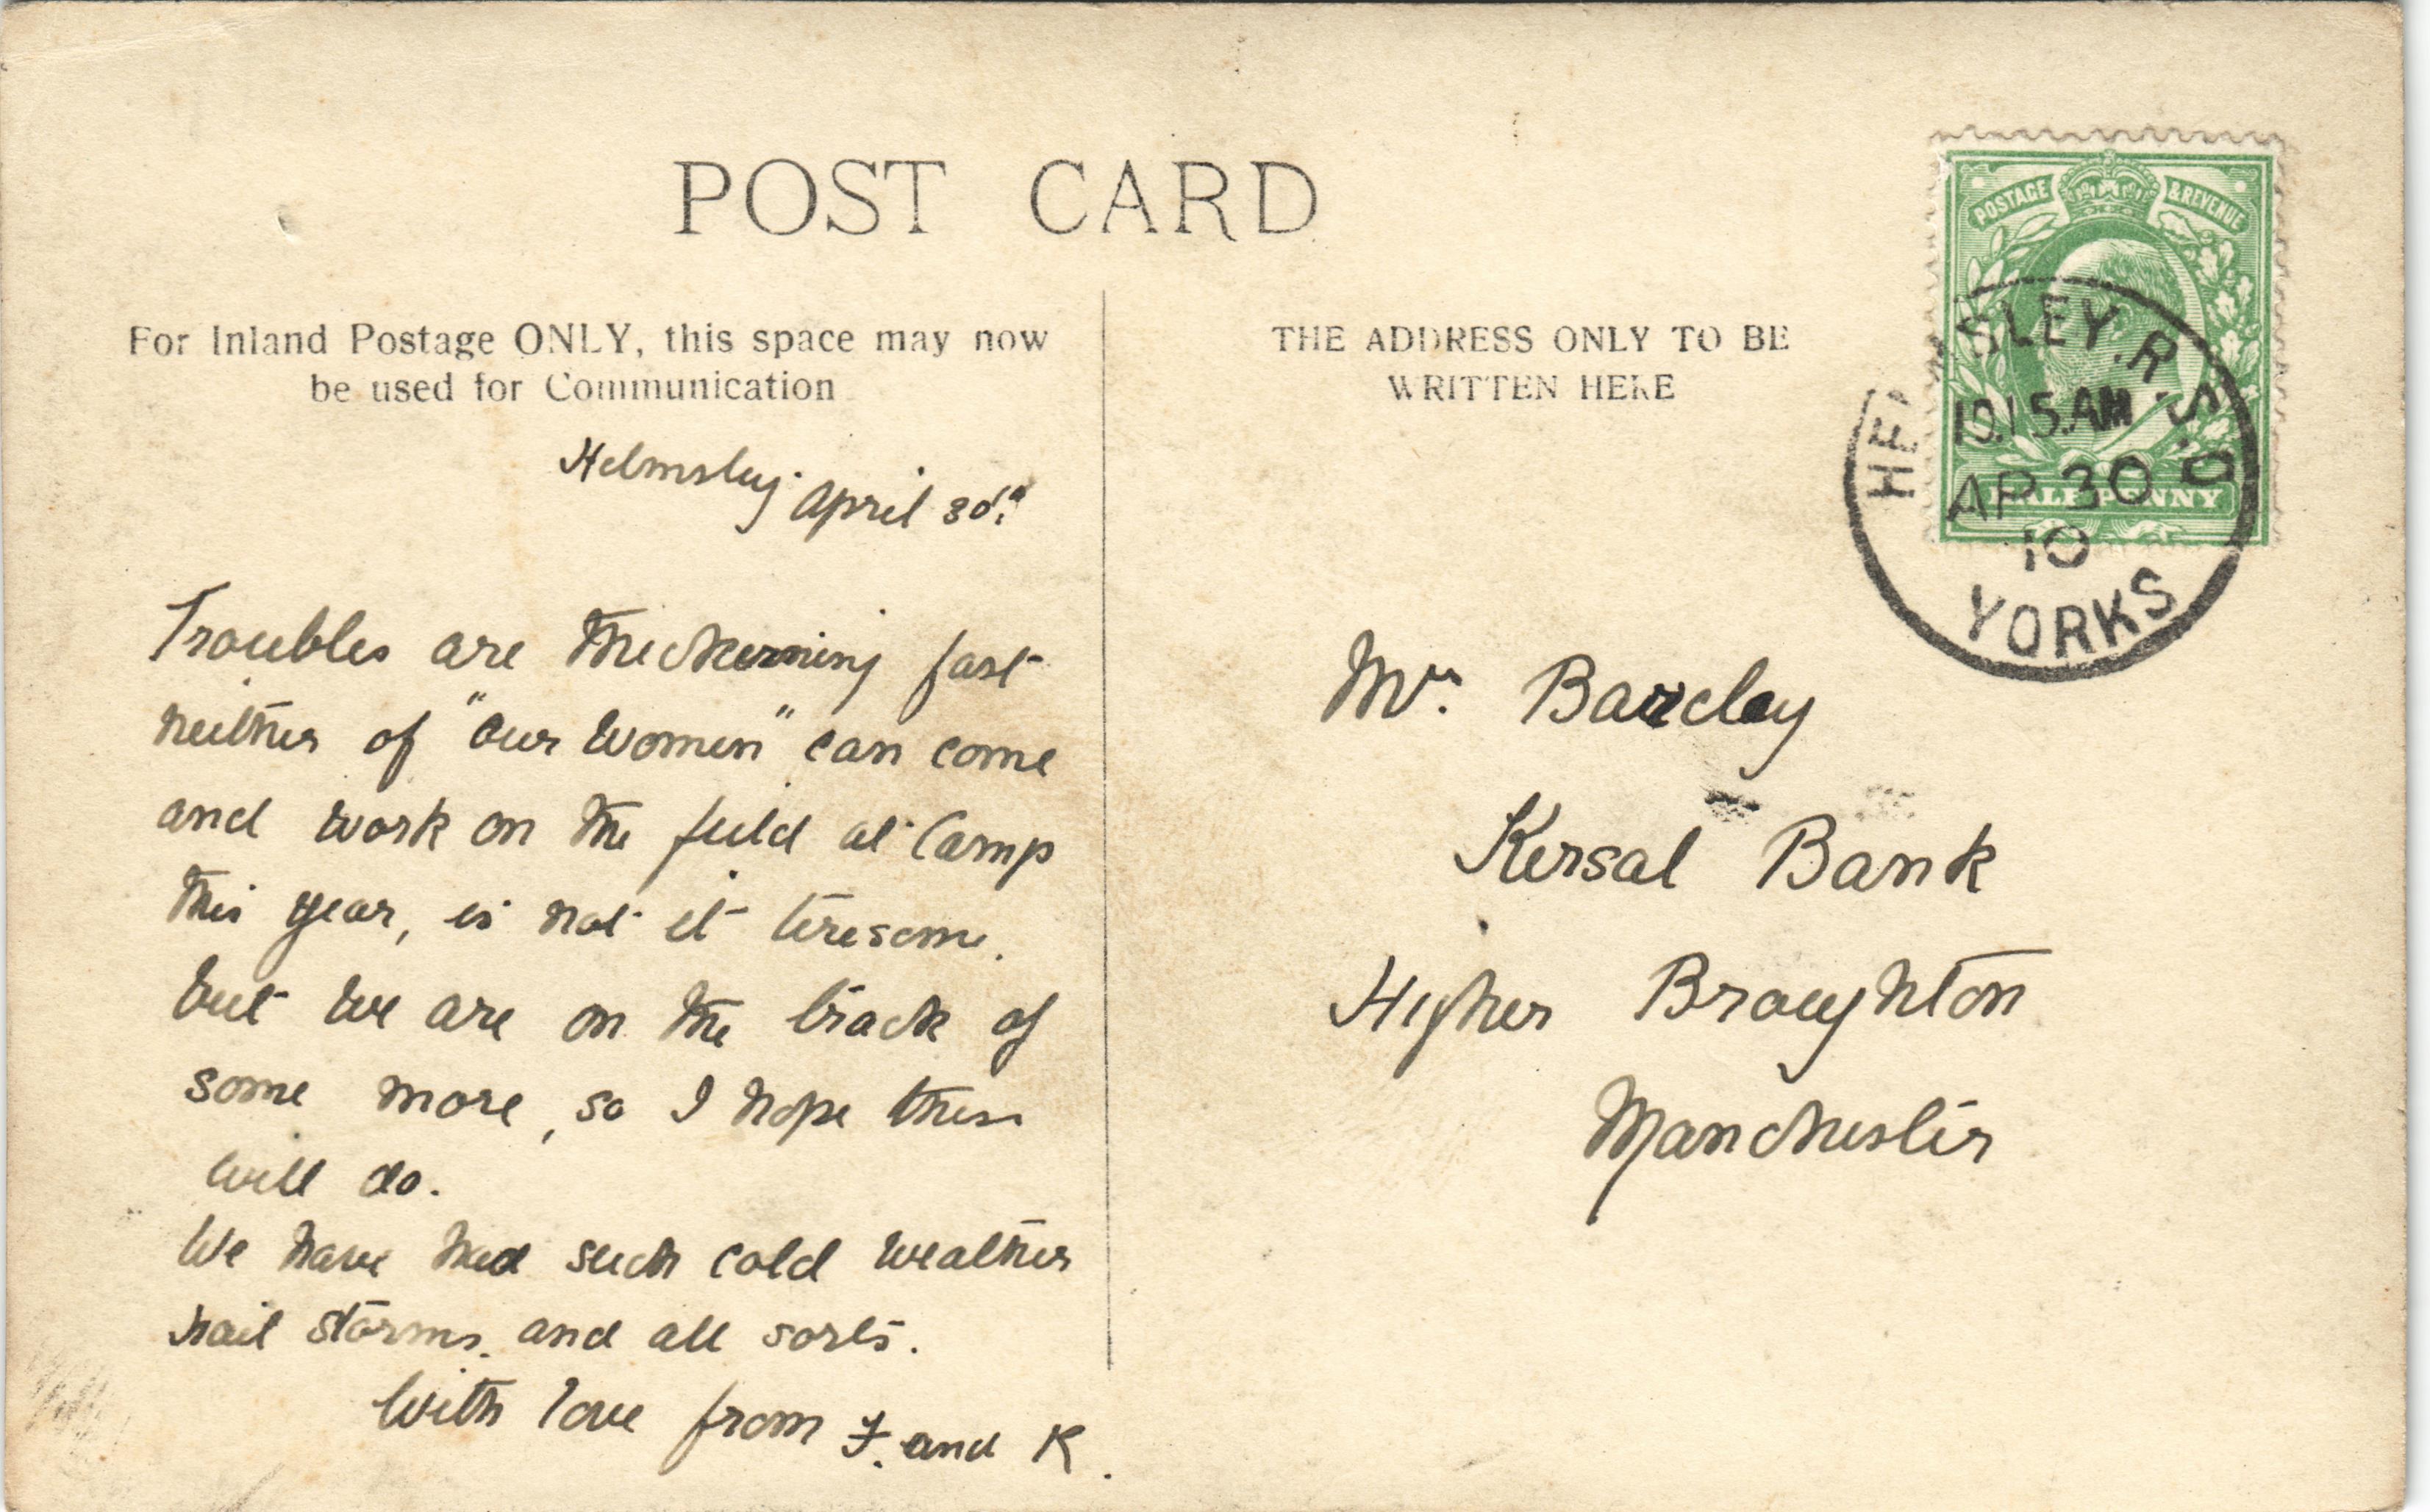 POST CARD
For Inland Postage ONLY, this space may now
be used for Communication
THE ADDRESS ONLY TO BE
WRITTEN HERE
POSTAGE & REVENUE
HALFPENNY
HELMSLEY.R.S.O
10.15.AM
AP 30
10
YORKS
Helmsley. April 30th
Troubles are thickening fast
neither of "our women" can come
and work on the field at Camp
this year, is not it tiresome.
but we are on the track of
some more, so I hope these
will do.
We have had such cold weather
hail storms. and all sorts.
With love from F. and K.
Mrs. Barclay
Kersal Bank
Higher Broughton
Manchester